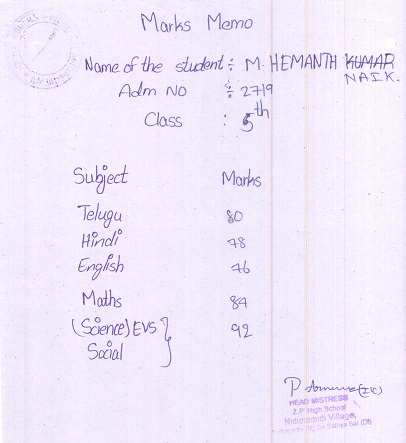 Marks Memo
Name of the student : M. HEMANTH KUMAR
NAIK.
Adm No : 2719
Class : 5th
Subject Marks
Telugu 80
Hindi 78
English 76
Maths 84
(Science) EVS 92
Social
HEAD MISTRESS
Z.P High School
Nidimamidi Village,
Sri Sathya Sai (Dt)